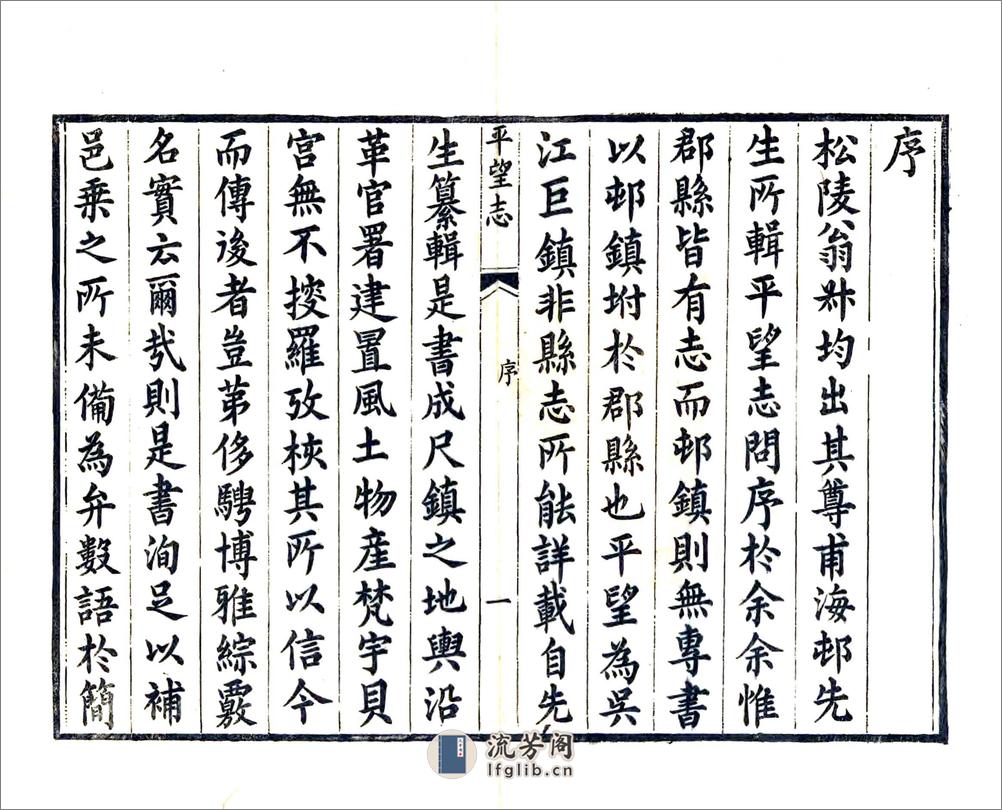 序
松陵翁尗均出其尊甫海邨先
生所輯平望志問序於余余惟
郡縣皆有志而邨鎮則無專書
以邨鎮坿於郡縣也平望為吳
江巨鎮非縣志所能詳載自先
平望志
序
一
生纂輯是書成尺鎮之地輿沿
革官署建置風土物產梵宇貝
宮無不搜羅攷核其所以信今
而傳後者豈第侈騁博雅綜覈
名實云爾哉則是書洵足以補
邑乘之所未備為弁數語於簡
流芳阁
lfglib.cn